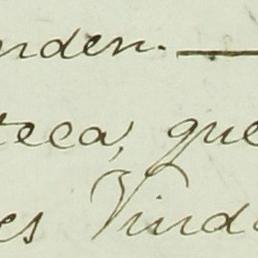 nden.—
teca, que
es Vind